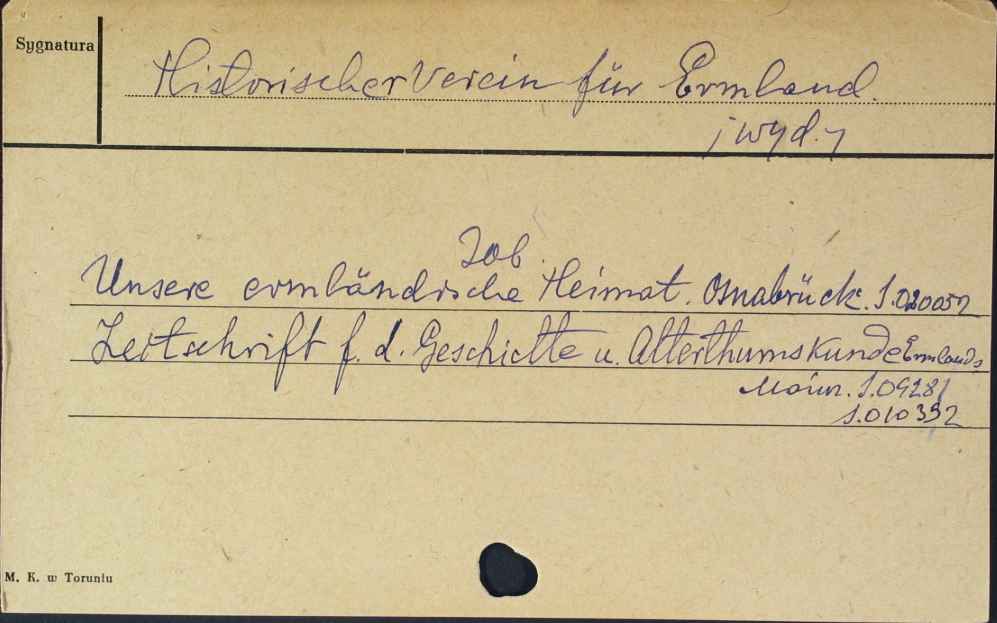 Sygnatura
Historischer Verein für Ermland.
/wyd./
Zob.
Unsere ermländische Heimat. Osnabrück. S.020052
Zeitschrift f. d. Geschichte u. Alterthumskunde Ermlands
Mainz. S.09281
S.010332
M. K. w Toruniu